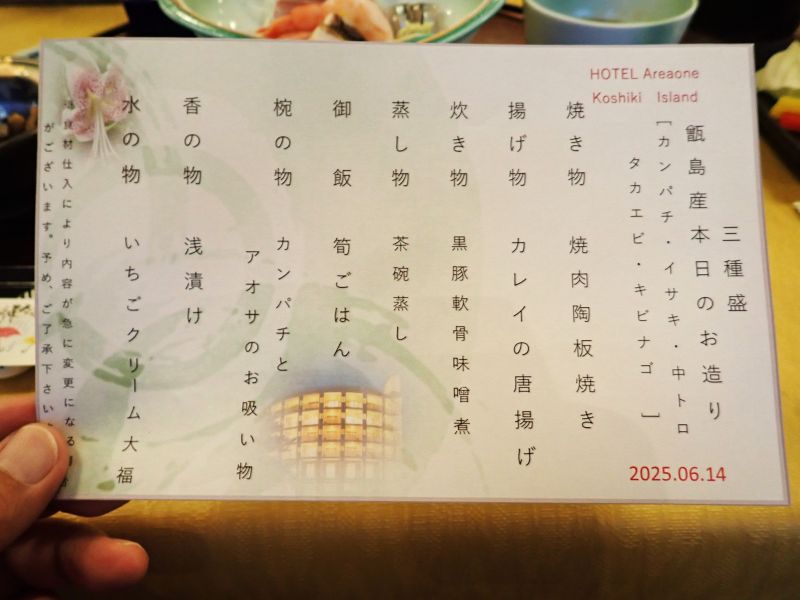 HOTEL Areaone
Koshiki Island
三種盛
甑島産本日のお造り
[カンパチ・イサキ・中トロ
タカエビ・キビナゴ]
焼き物 焼肉陶板焼き
揚げ物 カレイの唐揚げ
炊き物 黒豚軟骨味噌煮
蒸し物 茶碗蒸し
御飯 筍ごはん
椀の物 カンパチと
アオサのお吸い物
香の物 浅漬け
水の物 いちごクリーム大福
食材仕入により内容が急に変更になる
がございます。予め、ご了承下さい。
2025.06.14